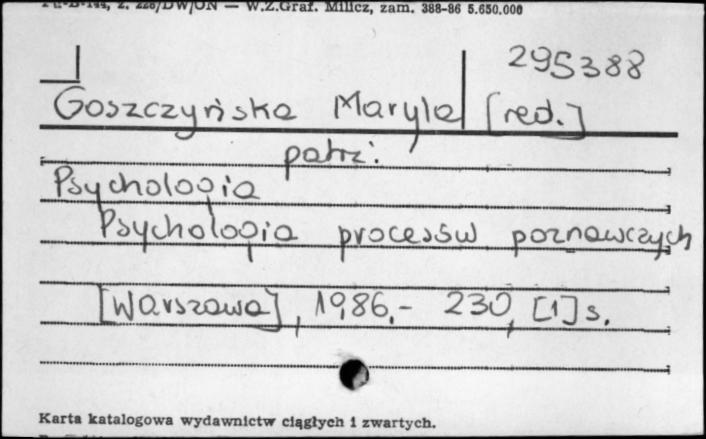 Pu-B-144, z. 228/DW/ON — W.Z.Graf. Milicz, zam. 388-86 5.650.000
295388
Goszczyńska Maryla [red.]
patrz:
Psychologia
Psychologia procesów poznawczych
[Warszawa], 1986.- 230, [1] s.
Karta katalogowa wydawnictw ciągłych i zwartych.